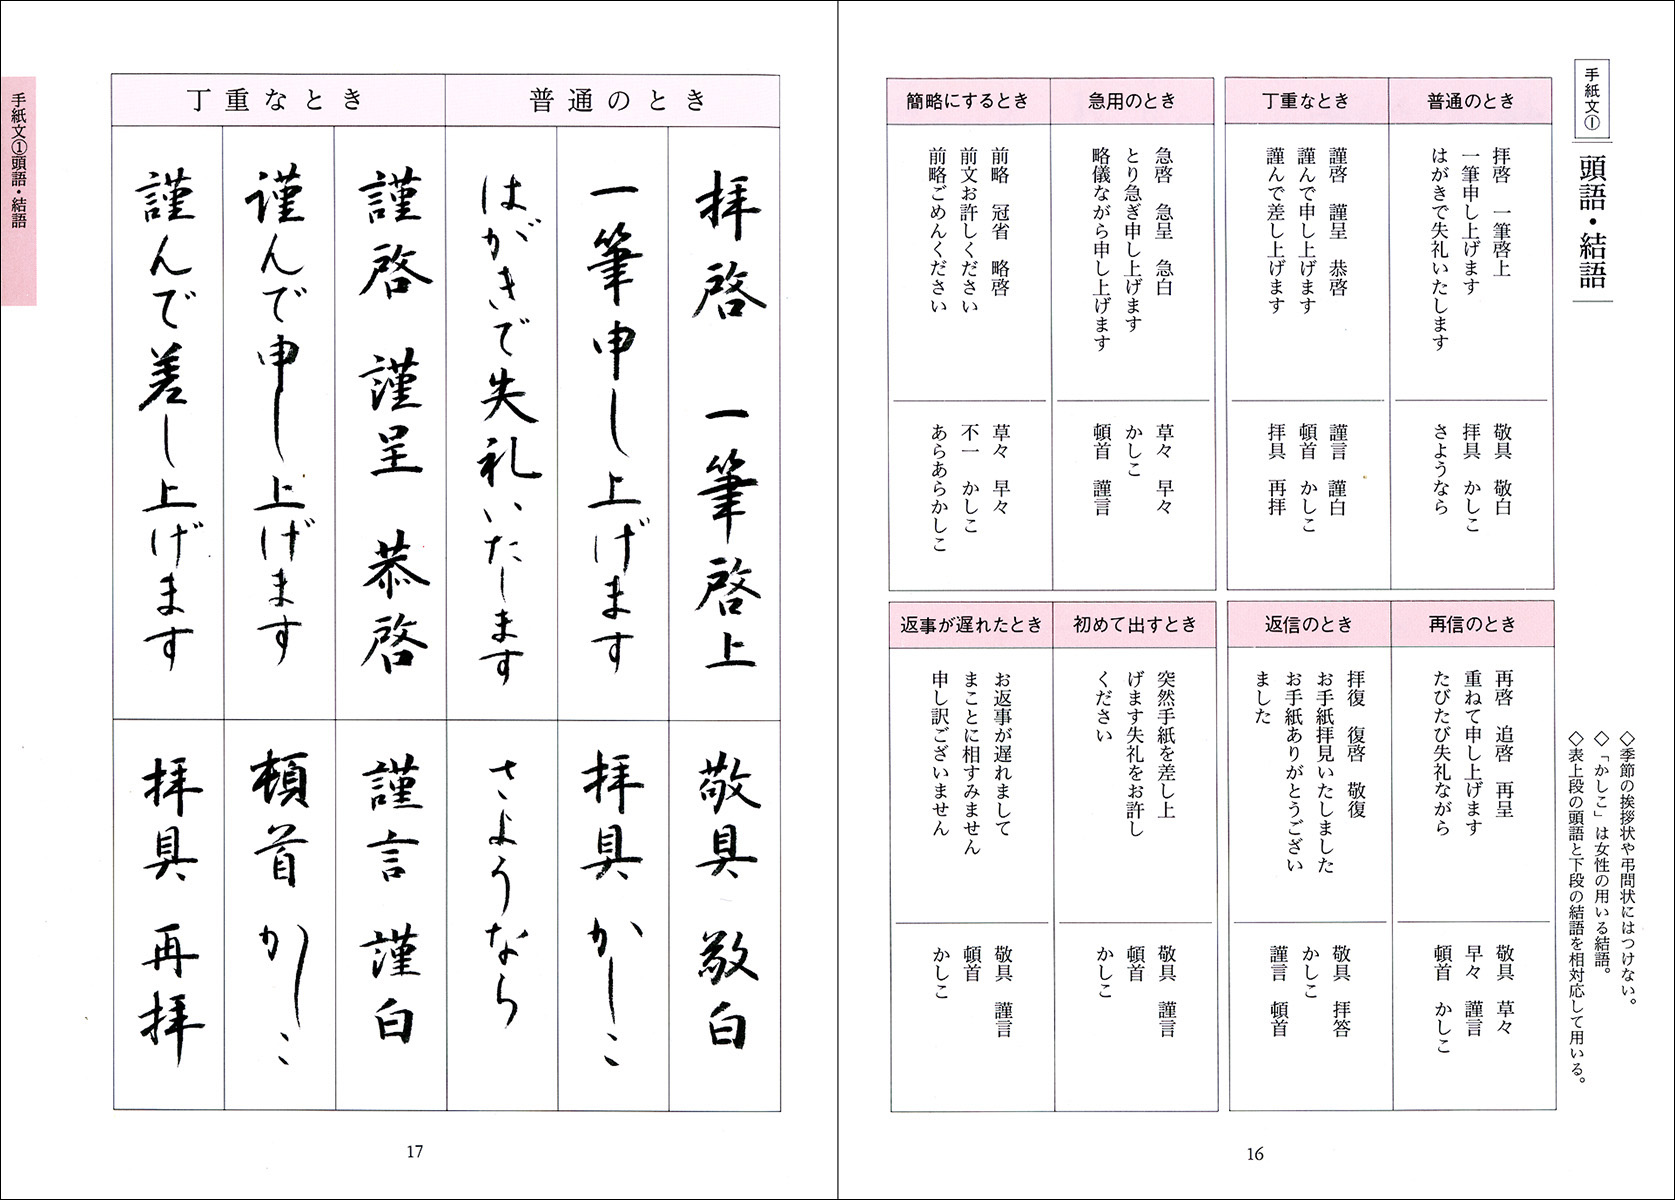 手紙文①
頭語・結語
◇季節の挨拶状や弔問状にはつけない。
◇「かしこ」は女性の用いる結語。
◇表上段の頭語と下段の結語を相対応して用いる。
普通のとき
拝啓　一筆啓上
一筆申し上げます
はがきで失礼いたします
敬具　敬白
拝具　かしこ
さようなら
丁重なとき
謹啓　謹呈　恭啓
謹んで申し上げます
謹んで差し上げます
謹言　謹白
頓首　かしこ
拝具　再拝
急用のとき
急啓　急呈　急白
とり急ぎ申し上げます
略儀ながら申し上げます
草々　早々
かしこ
頓首　謹言
簡略にするとき
前略　冠省　略啓
前文お許しください
前略ごめんください
草々　早々
不一　かしこ
あらあらかしこ
再信のとき
再啓　追啓　再呈
重ねて申し上げます
たびたび失礼ながら
敬具　草々
早々　謹言
頓首　かしこ
返信のとき
拝復　復啓　敬復
お手紙拝見いたしました
お手紙ありがとうござい
ました
敬具　拝答
かしこ
謹言　頓首
初めて出すとき
突然手紙を差し上
げます失礼をお許し
ください
敬具　謹言
頓首
かしこ
返事が遅れたとき
お返事が遅れまして
まことに相すみません
申し訳ございません
敬具　謹言
頓首
かしこ
16
普通のとき
拝啓　一筆啓上
敬具　敬白
一筆申し上げます
拝具　かしこ
はがきで失礼いたします
さようなら
丁重なとき
謹啓　謹呈　恭啓
謹言　謹白
謹んで申し上げます
頓首　かしこ
謹んで差し上げます
拝具　再拝
手紙文①頭語・結語
17